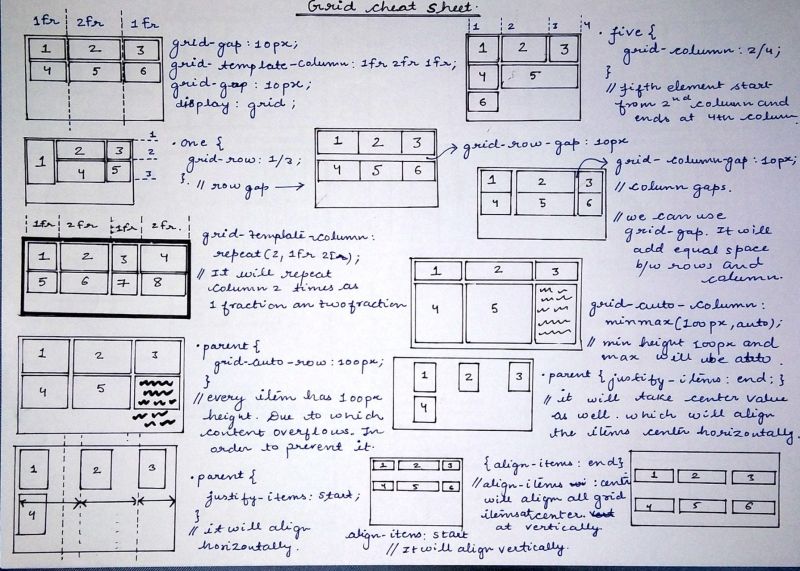 Grid cheat sheet.
1fr 2fr 1fr
1 2 3
4 5 6
grid-gap: 10px;
grid-template-column: 1fr 2fr 1fr;
grid-gap: 10px;
display: grid;
1 2 3 4
1 2 3
4 5
6
• five {
grid-column: 2/4;
}
// fifth element start
from 2nd column and
ends at 4th colum.
1 2 3
4 5
1
2
3
• one {
grid-row: 1/3;
}. // row gap
1 2 3
4 5 6
grid-row-gap: 10px
1 2 3
4 5 6
grid-column-gap: 10px;
// column gaps.
// we can use
grid-gap. It will
add equal space
b/w rows and
column.
1fr 2fr 1fr 2fr.
1 2 3 4
5 6 7 8
grid-template-column:
repeat(2, 1fr 2fr);
// It will repeat
column 2 times as
1 fraction an two fraction
1 2 3
4 5
grid-auto-column:
minmax(100px, auto);
// min height 100px and
max will be auto.
1 2 3
4 5
• parent {
grid-auto-row: 100px;
}
// every item has 100px
height. Due to which
content overflows. In
order to prevent it.
1 2 3
4
• parent { justify-items: end; }
// it will take center value
as well. which will align
the items center horizontally.
1 2 3
4
• parent {
justify-items: start;
}
// it will align
horizontally.
1 2 3
4 5 6
align-items: start
// It will align vertically.
{align-items: end}
// align-items : cente
will align all grid
items at center.
at vertically.
1 2 3
4 5 6